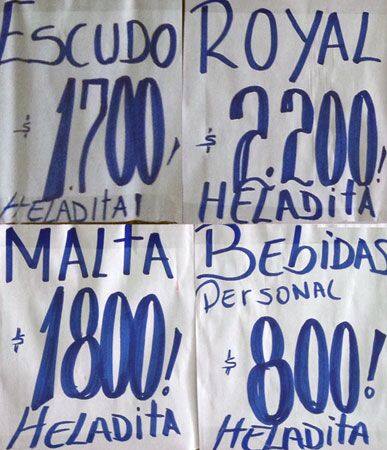 ESCUDO
$ 1.700!
HELADITA!
ROYAL
$ 2.200!
HELADITA
MALTA
$ 1800!
HELADITA
BEBIDAS
PERSONAL
$ 800!
HELADITA